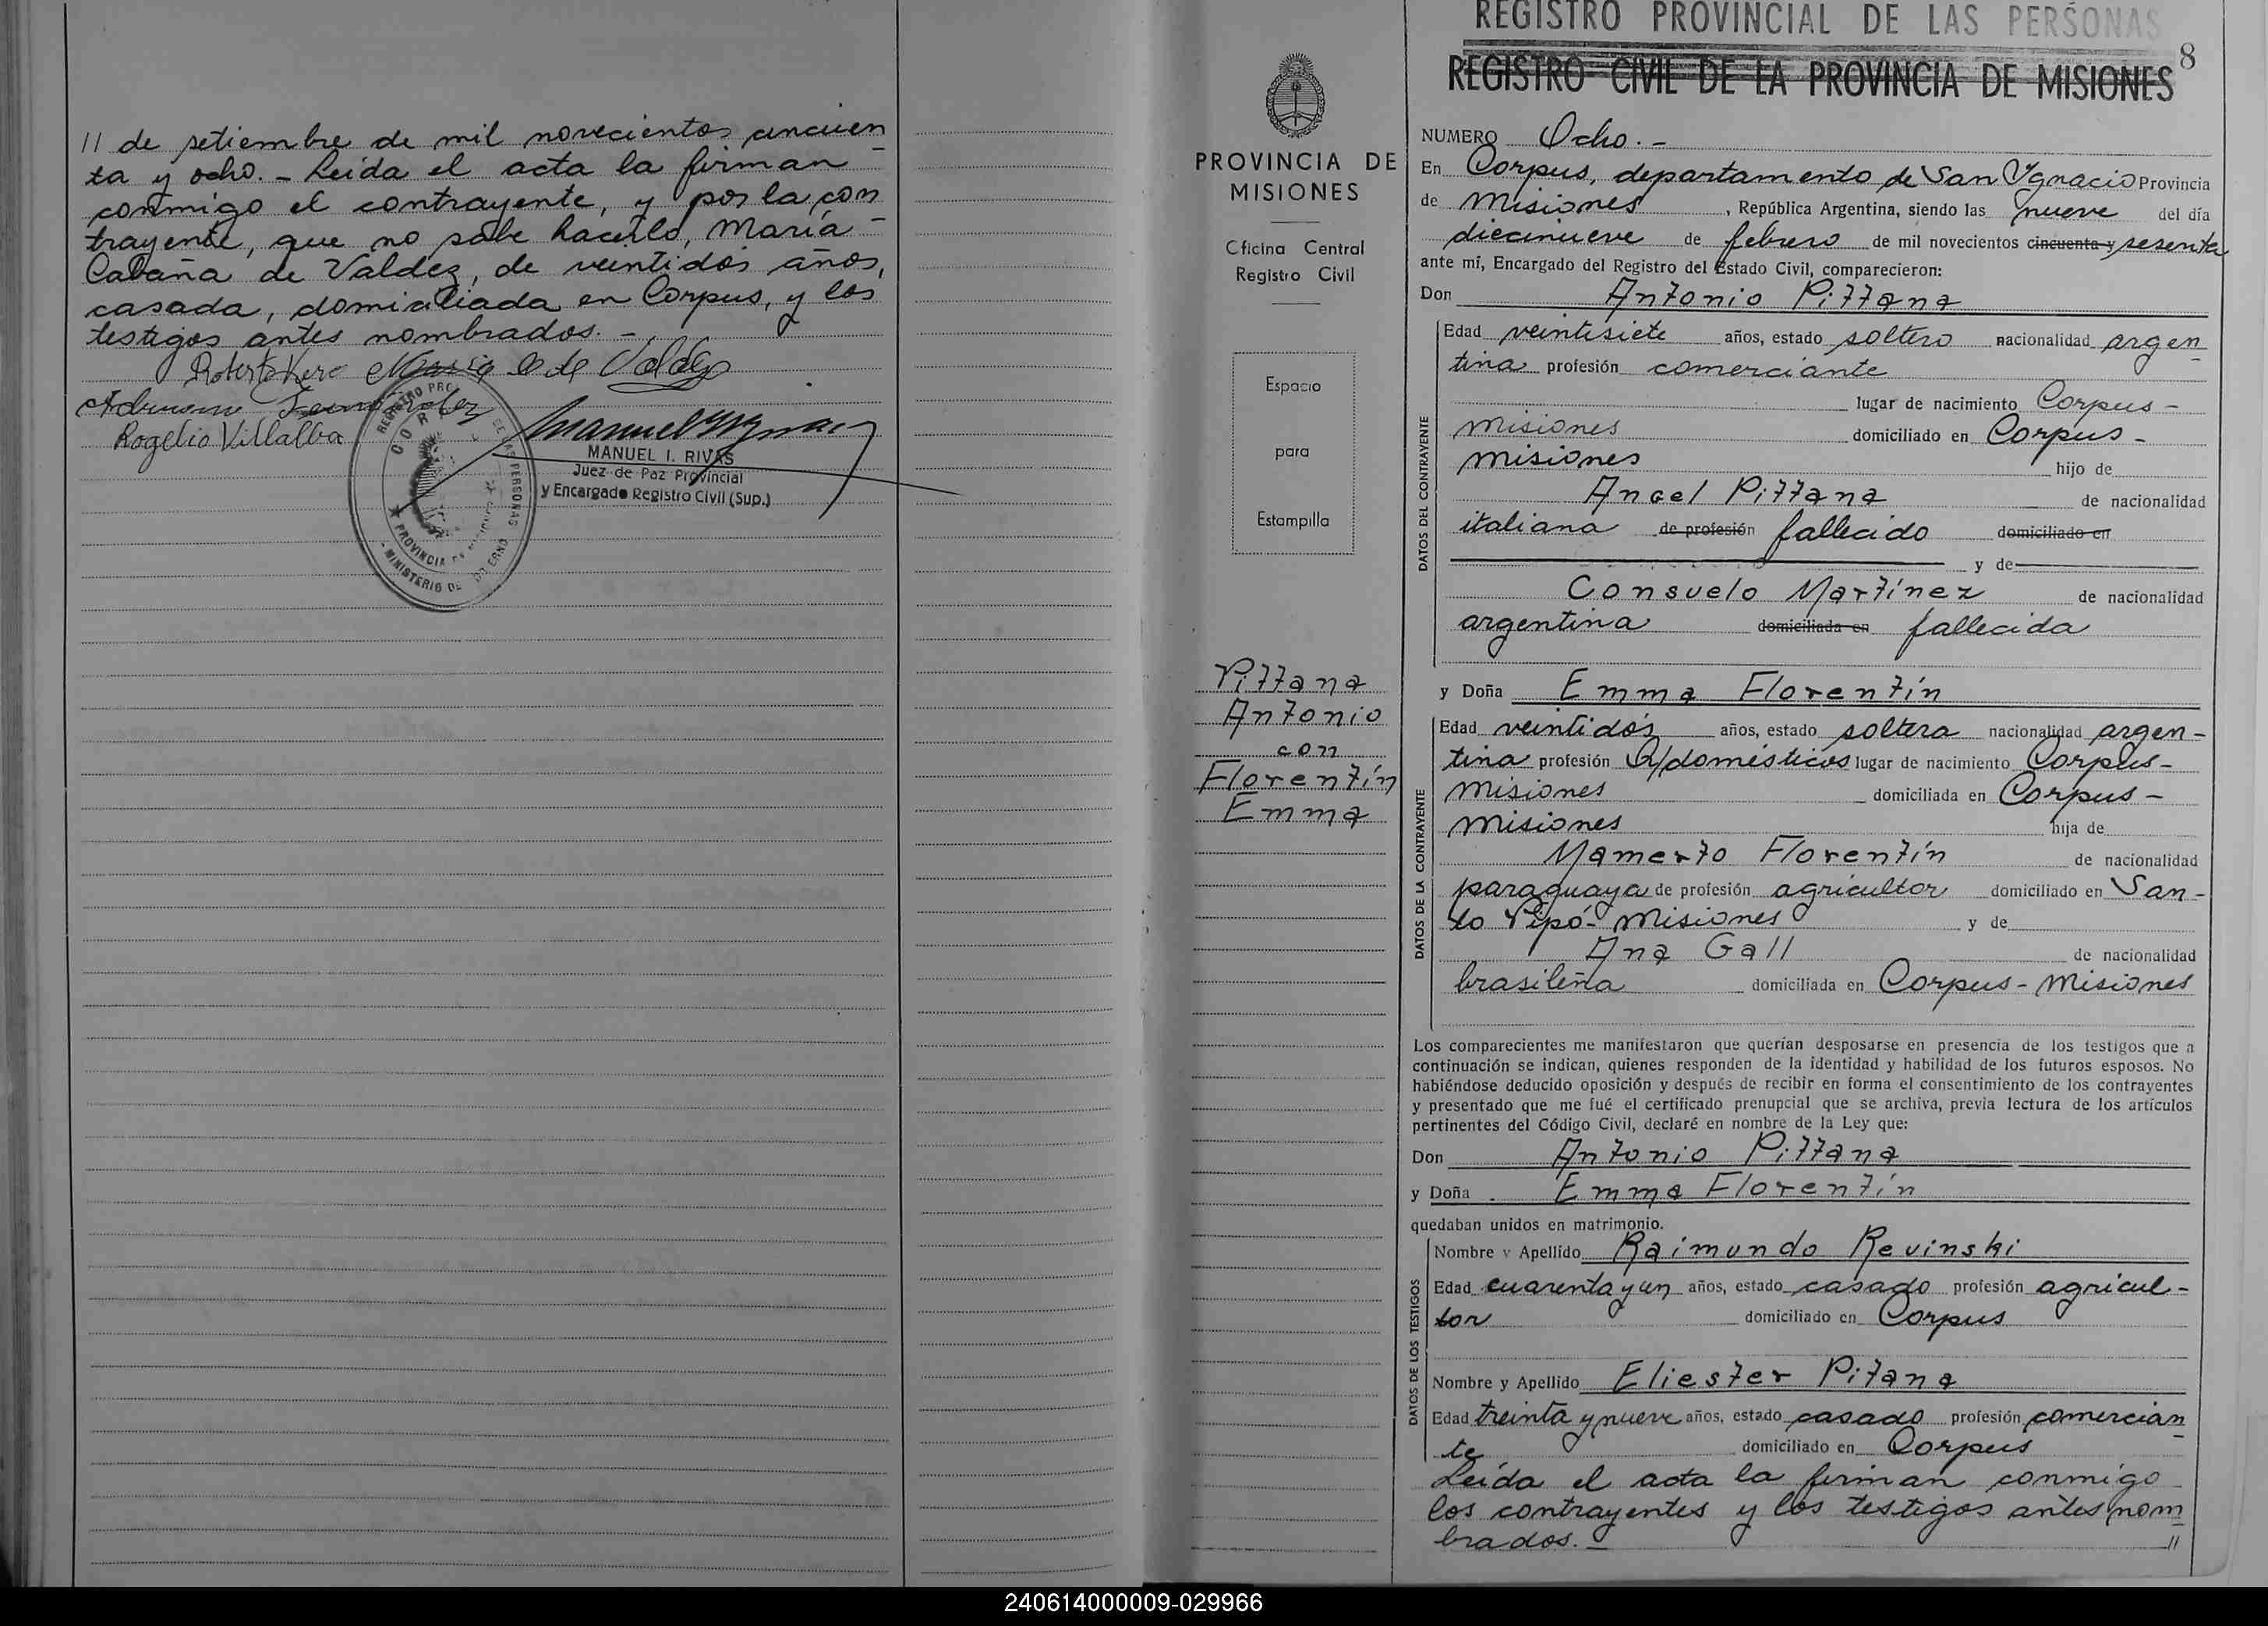 // de setiembre de mil novecientos cincuen
ta y ocho. - Leida el acta la firman
conmigo el contrayente, y por la con
trayente, que no sabe hacerlo, María
Cabaña de Valdez, de veintidos años,
casada, domiciliada en Corpus, y los
testigos antes nombrados. -
Maria C de Valdez
Rogelio Villalba
REGISTRO PRO DE LAS PERSONAS
COR
PROVINCIA DE
MINISTERIO DE
MANUEL I. RIVAS
Juez de Paz Provincial
y Encargado Registro Civil (Sup.)
PROVINCIA DE
MISIONES
Oficina Central
Registro Civil
Espacio
para
Estampilla
Pittana
Antonio
con
Florentín
Emma
REGISTRO PROVINCIAL DE LAS PERSONAS
8
REGISTRO CIVIL DE LA PROVINCIA DE MISIONES
NUMERO Ocho. -
En Corpus, departamento de San Ygnacio Provincia
de Misiones, República Argentina, siendo las nueve del día
diecinueve de febrero de mil novecientos cincuenta y sesenta
ante mí, Encargado del Registro del Estado Civil, comparecieron:
Don Antonio Pittana
DATOS DEL CONTRAYENTE
Edad veintisiete años, estado soltero nacionalidad argen
tina profesión comerciante
lugar de nacimiento Corpus -
Misiones domiciliado en Corpus -
Misiones hijo de
Angel Pittana de nacionalidad
italiana de profesión fallecido domiciliado en
y de
Consuelo Martínez de nacionalidad
argentina domiciliada en fallecida
y Doña Emma Florentín
DATOS DE LA CONTRAYENTE
Edad veintidós años, estado soltera nacionalidad argen-
tina profesión Q/domésticos lugar de nacimiento Corpus-
Misiones domiciliada en Corpus -
Misiones hija de
Mamerto Florentín de nacionalidad
paraguaya de profesión agricultor domiciliado en San-
to Pipó - Misiones y de
Ana Gall de nacionalidad
brasileña domiciliada en Corpus - Misiones
Los comparecientes me manifestaron que querían desposarse en presencia de los testigos que a
continuación se indican, quienes responden de la identidad y habilidad de los futuros esposos. No
habiéndose deducido oposición y después de recibir en forma el consentimiento de los contrayentes
y presentado que me fué el certificado prenupcial que se archiva, previa lectura de los artículos
pertinentes del Código Civil, declaré en nombre de la Ley que:
Don Antonio Pittana
y Doña Emma Florentín
quedaban unidos en matrimonio.
DATOS DE LOS TESTIGOS
Nombre y Apellido Raimundo Revinski
Edad cuarenta y un años, estado casado profesión agricul-
tor domiciliado en Corpus
Nombre y Apellido Eliester Pitana
Edad treinta y nueve años, estado casado profesión comercian
te domiciliado en Corpus
Leída el acta la firman conmigo
los contrayentes y los testigos antes nom
brados. - //
240614000009-029966